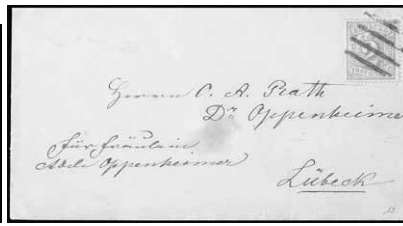 Herrn O. A. Rath
Dr. Oppenheimer
für Fräulein
Adele Oppenheimer
Lübeck